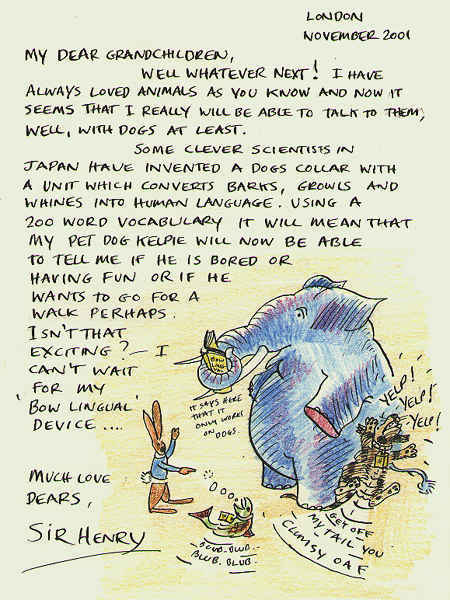 LONDON
NOVEMBER 2001
MY DEAR GRANDCHILDREN,
WELL WHATEVER NEXT! I HAVE
ALWAYS LOVED ANIMALS AS YOU KNOW AND NOW IT
SEEMS THAT I REALLY WILL BE ABLE TO TALK TO THEM,
WELL, WITH DOGS AT LEAST.
SOME CLEVER SCIENTISTS IN
JAPAN HAVE INVENTED A DOGS COLLAR WITH
A UNIT WHICH CONVERTS BARKS, GROWLS AND
WHINES INTO HUMAN LANGUAGE. USING A
200 WORD VOCABULARY IT WILL MEAN THAT
MY PET DOG KELPIE WILL NOW BE ABLE
TO TELL ME IF HE IS BORED OR
HAVING FUN OR IF HE
WANTS TO GO FOR A
WALK PERHAPS.
ISN'T THAT
EXCITING? - I
CAN'T WAIT
FOR MY
'BOW LINGUAL'
DEVICE ....
BOW
LING
IT SAYS HERE
THAT IT
ONLY WORKS
ON DOGS
YELP!
YELP!
YELP!
GET OFF
MY TAIL YOU
CLUMSY OAF
BLUB. BLUB.
BLUB. BLUB.
MUCH LOVE
DEARS,
SIR HENRY